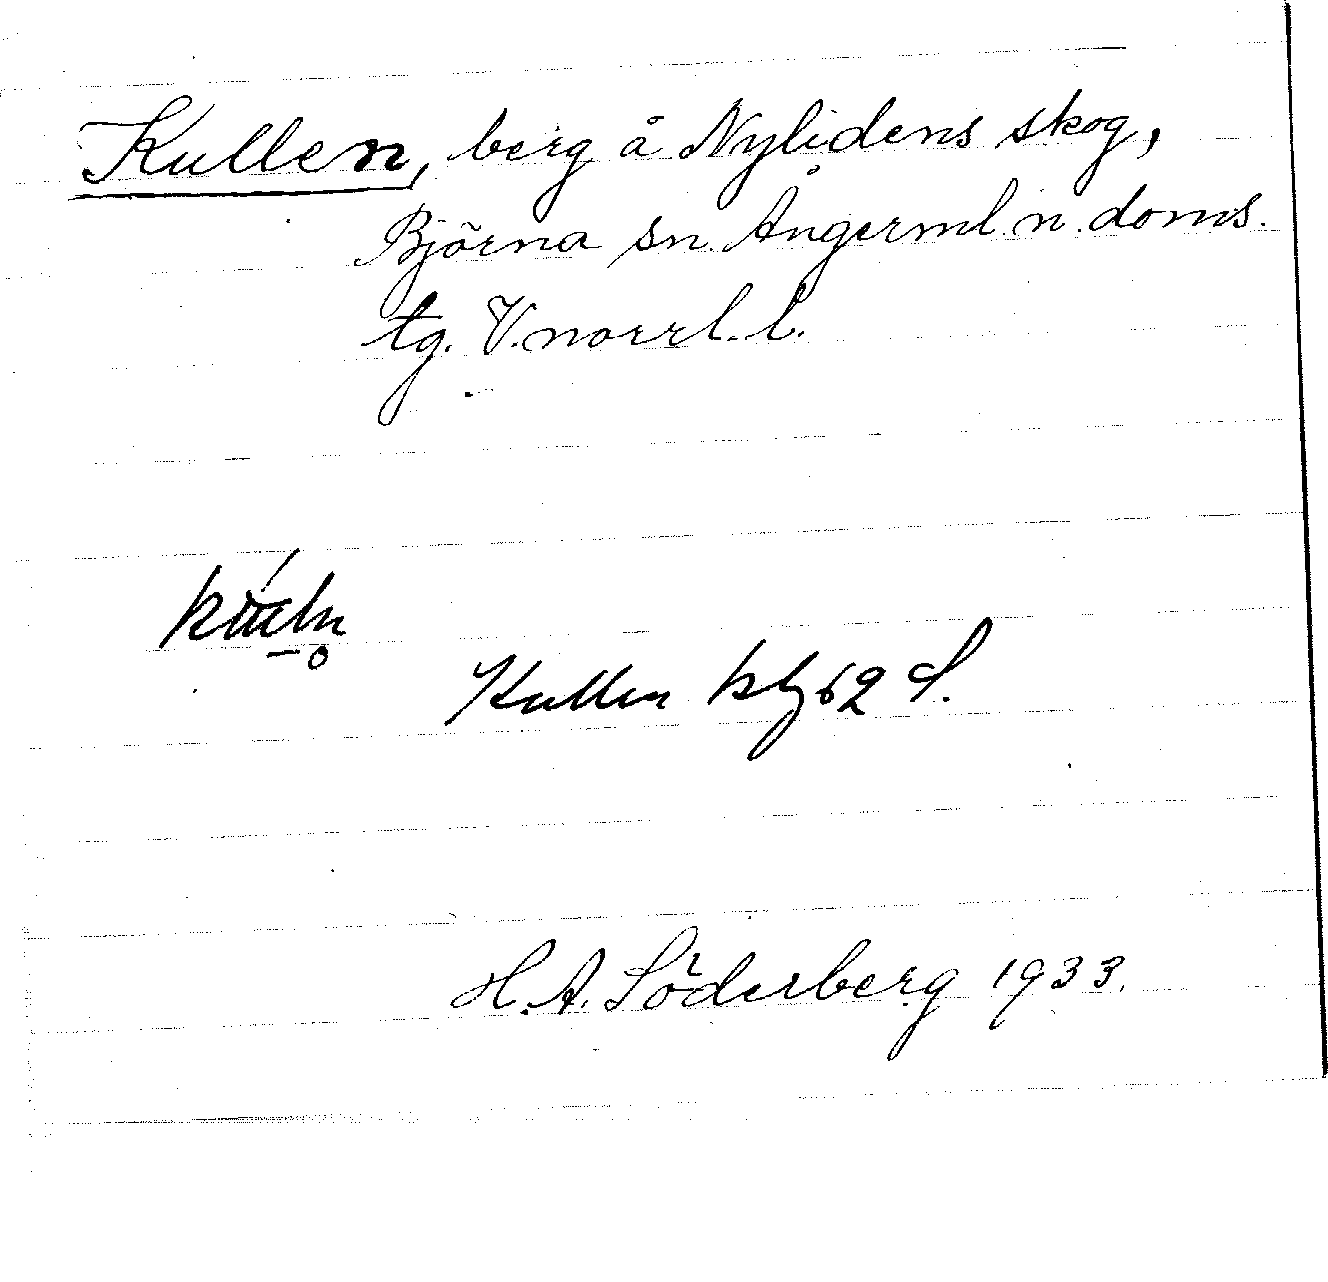 Kullen, berg å Nylidens skog,
Björna sn. Ångerml. n. doms.
tg. V.norrl. l.
Kullen kbg 62 S.
H. A. Söderberg 1933.